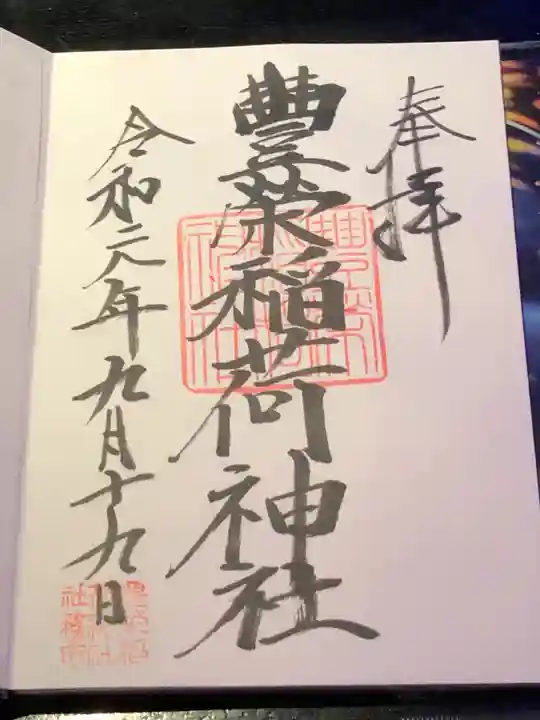 奉拝
豊榮稲荷神社
令和元年九月十九日